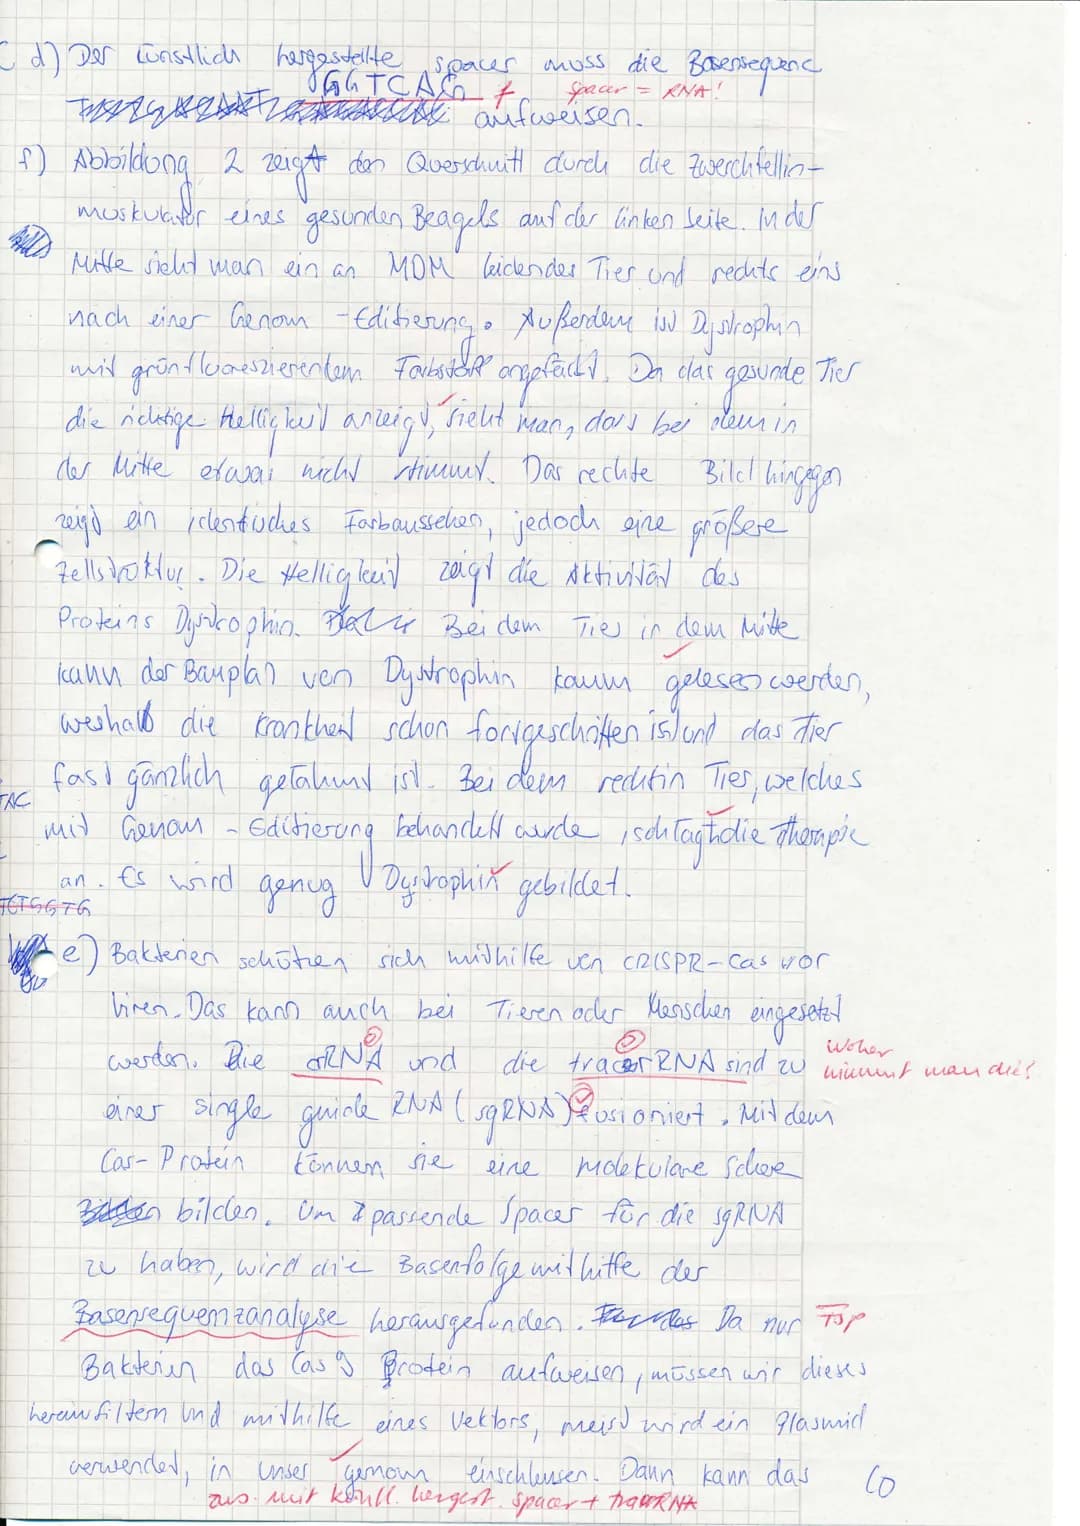 d) Der künstlich hergestellte spacer muss die Basensequenz
GGTCAG f Spacer = RNA!
aufweisen.
f) Abbildung 2 zeigt den Querschnitt durch die Zwerchfellin-
muskulatur eines gesunden Beagels auf der linken Seite. In der
Mitte sieht man ein an MDM leidendes Tier und rechts eins
nach einer Genom-Editierung. Außerdem ist Dystrophin
mit grünfluoreszierendem Farbstoff angefärbt. Da das gesunde Tier
die richtige Helligkeit anzeigt, sieht man, dass bei dem in
der Mitte etwas nicht stimmt. Das rechte Bild hingegen
zeigt ein identisches Farbaussehen, jedoch eine größere
Zellstruktur. Die Helligkeit zeigt die Aktivität des
Proteins Dystrophin. Bei dem Tier in dem Mitte
kann der Bauplan von Dystrophin kaum gelesen werden,
weshalb die Krankheit schon fortgeschritten ist und das Tier
fast gänzlich gelähmt ist. Bei dem rechtin Tier, welches
TAC
mit Genom-Editierung behandelt wurde, schlägt die Therapie
an. Es wird genug Dystrophin gebildet.
TCTGGTG
e) Bakterien schützen sich mithilfe von CRISPR-Cas vor
Viren. Das kann auch bei Tieren oder Menschen eingesetzt
werden. Die crRNA und die tracrRNA sind zu Woher nimmt man die?
einer single guide RNA (sgRNA) fusioniert. Mit dem
Cas-Protein können sie eine molekulare Schere
bilden. Um passende Spacer für die sgRNA
zu haben, wird die Basenfolge mithilfe der
Basensequenzanalyse herausgefunden. Da nur Tsp
Bakterien das Cas9 Protein aufweisen, müssen wir dieses
herausfiltern und mithilfe eines Vektors, meist wird ein Plasmid
verwendet, in unser genom einschleusen. Dann kann das
zus. mit künstl. hergest. Spacer + tracrRNA